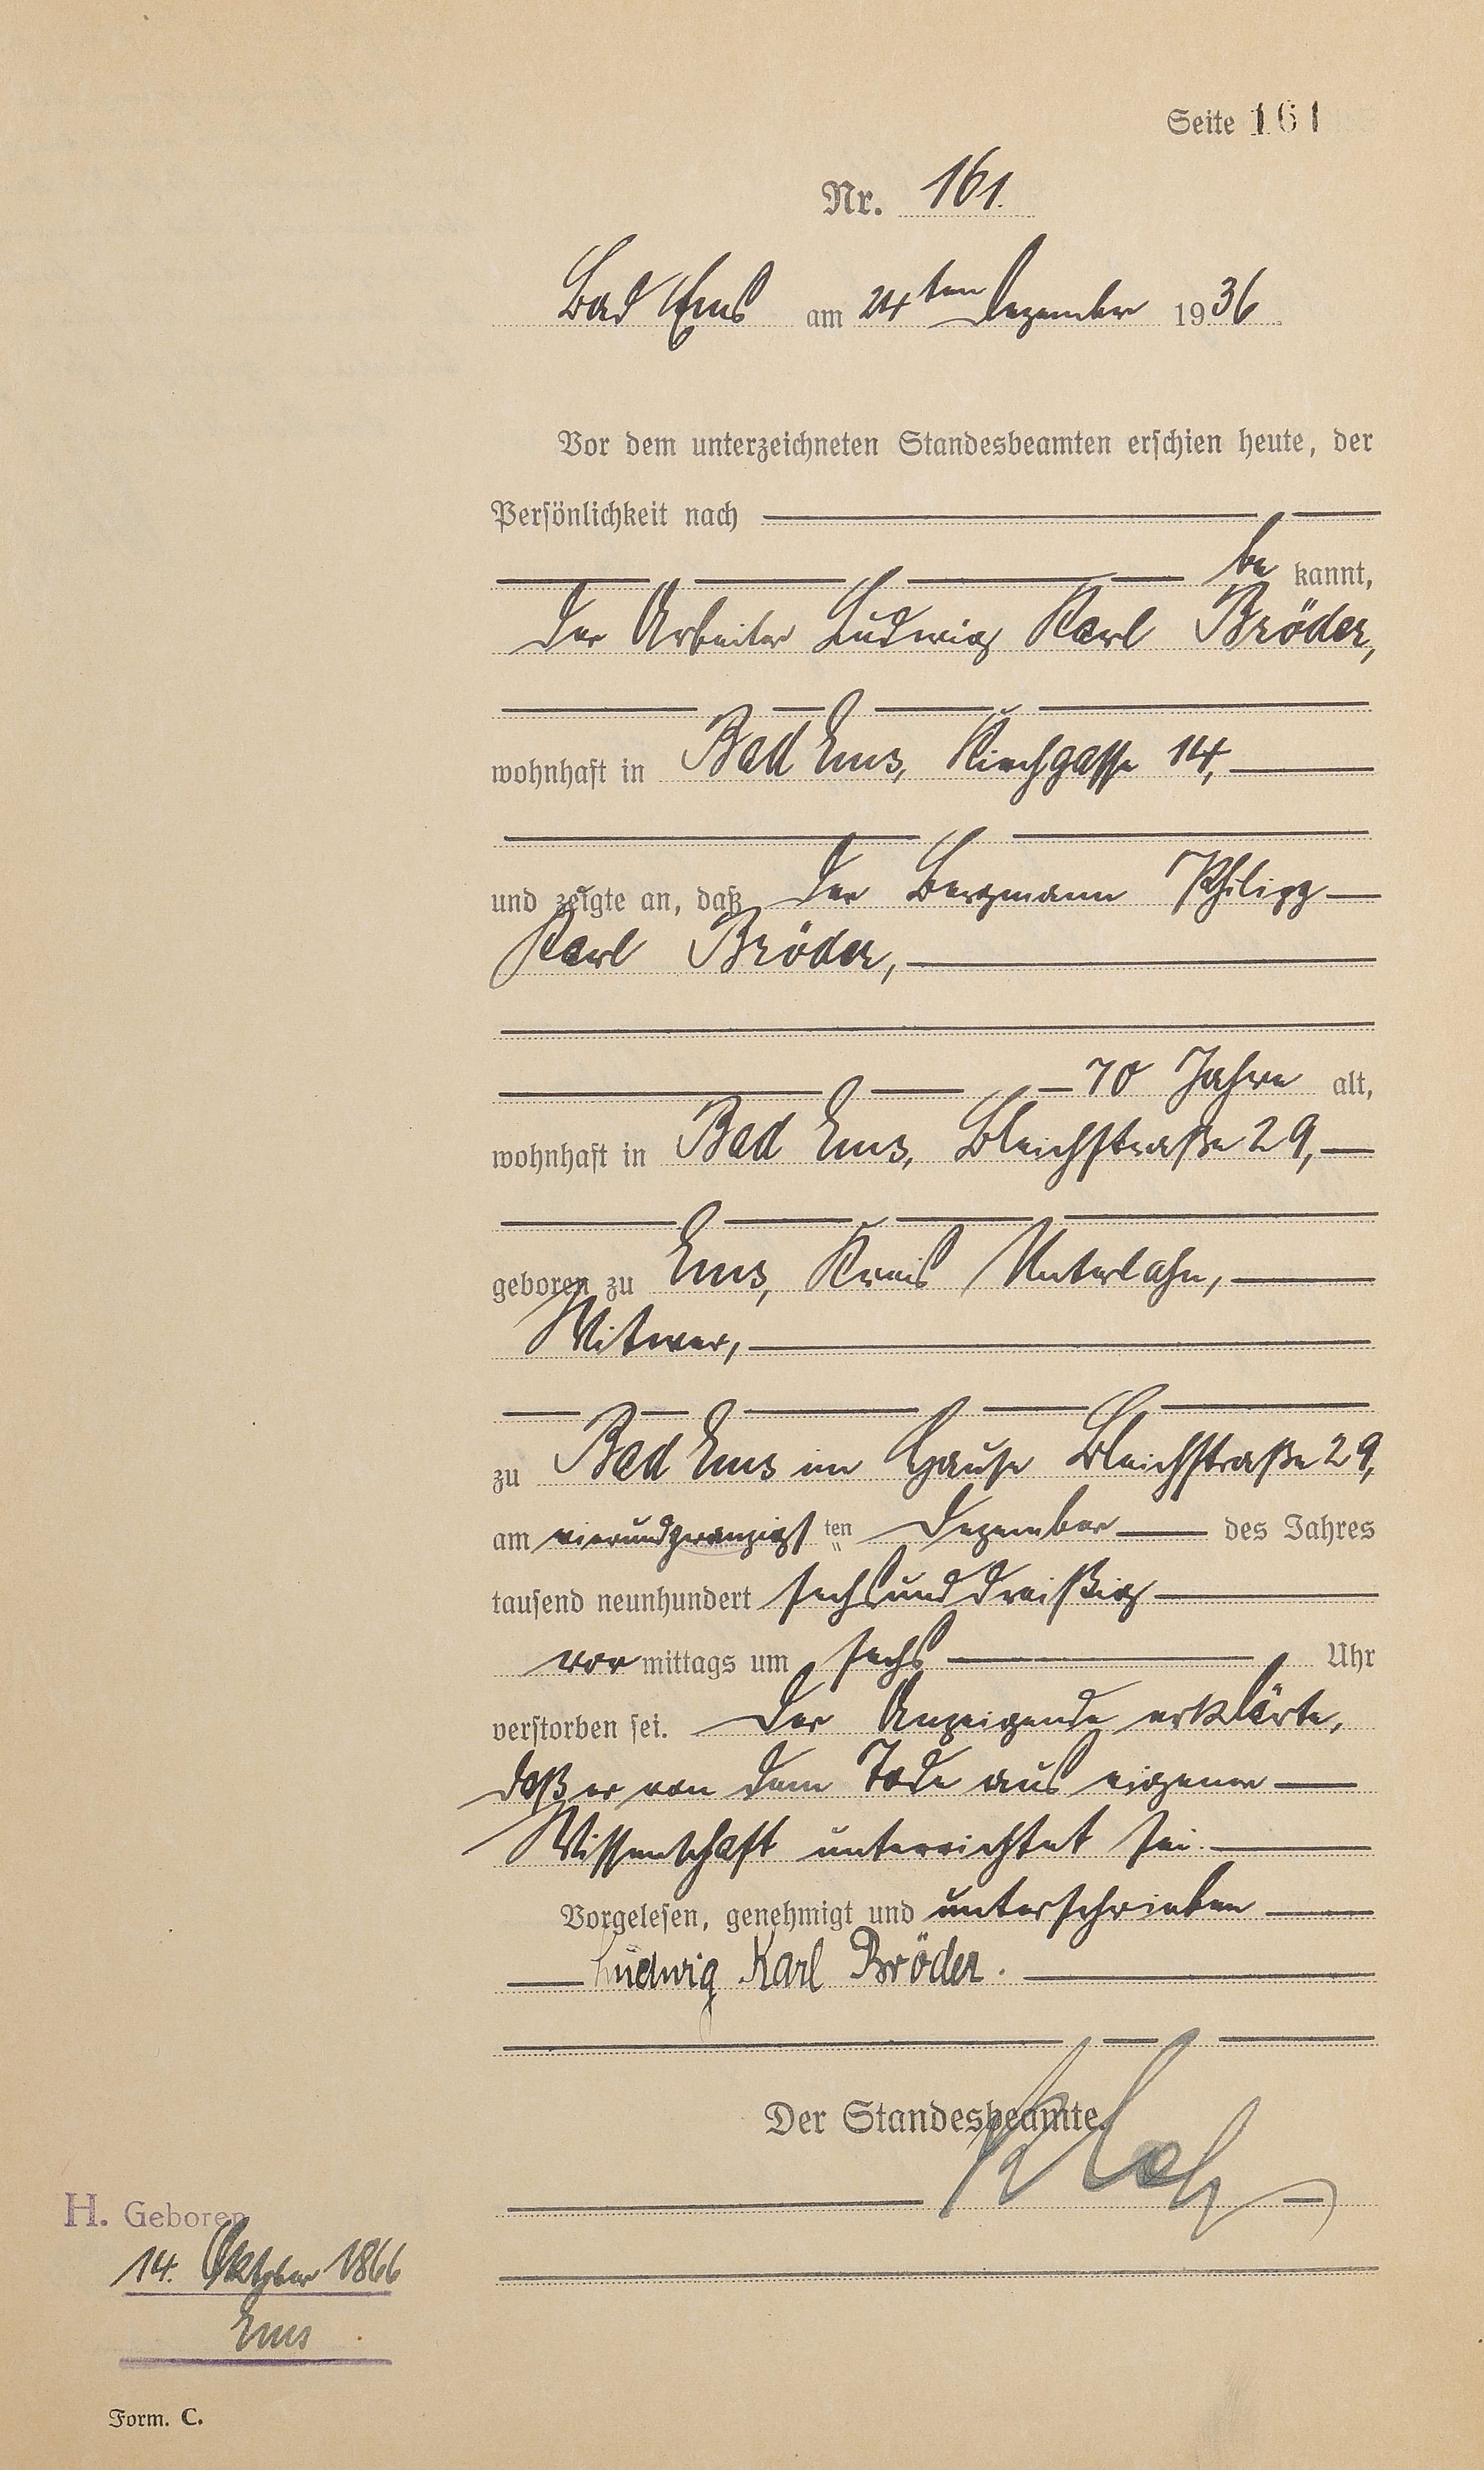 Seite 161
Nr. 161.
Bad Ems am 24ten Dezember 1936
Vor dem unterzeichneten Standesbeamten erschien heute, der
Persönlichkeit nach
be kannt,
der Arbeiter Ludwig Karl Bröder,
wohnhaft in Bad Ems, Kirchgasse 14,
und zeigte an, daß der Bergmann Philipp
Karl Bröder,
70 Jahre alt,
wohnhaft in Bad Ems, Bleichstraße 29,
geboren zu Ems, Kreis Unterlahn,
Witwer,
zu Bad Ems im Hause Bleichstraße 29,
am vierundzwanzigsten Dezember des Jahres
tausend neunhundert sechsunddreißig
vor mittags um sechs Uhr
verstorben sei. Der Anzeigende erklärte,
daß er von dem Tode aus eigener
Wissenschaft unterrichtet sei.
Vorgelesen, genehmigt und unterschrieben
Ludwig Karl Bröder.
Der Standesbeamte.
H. Geboren
14. Oktober 1866
Ems
Form. C.